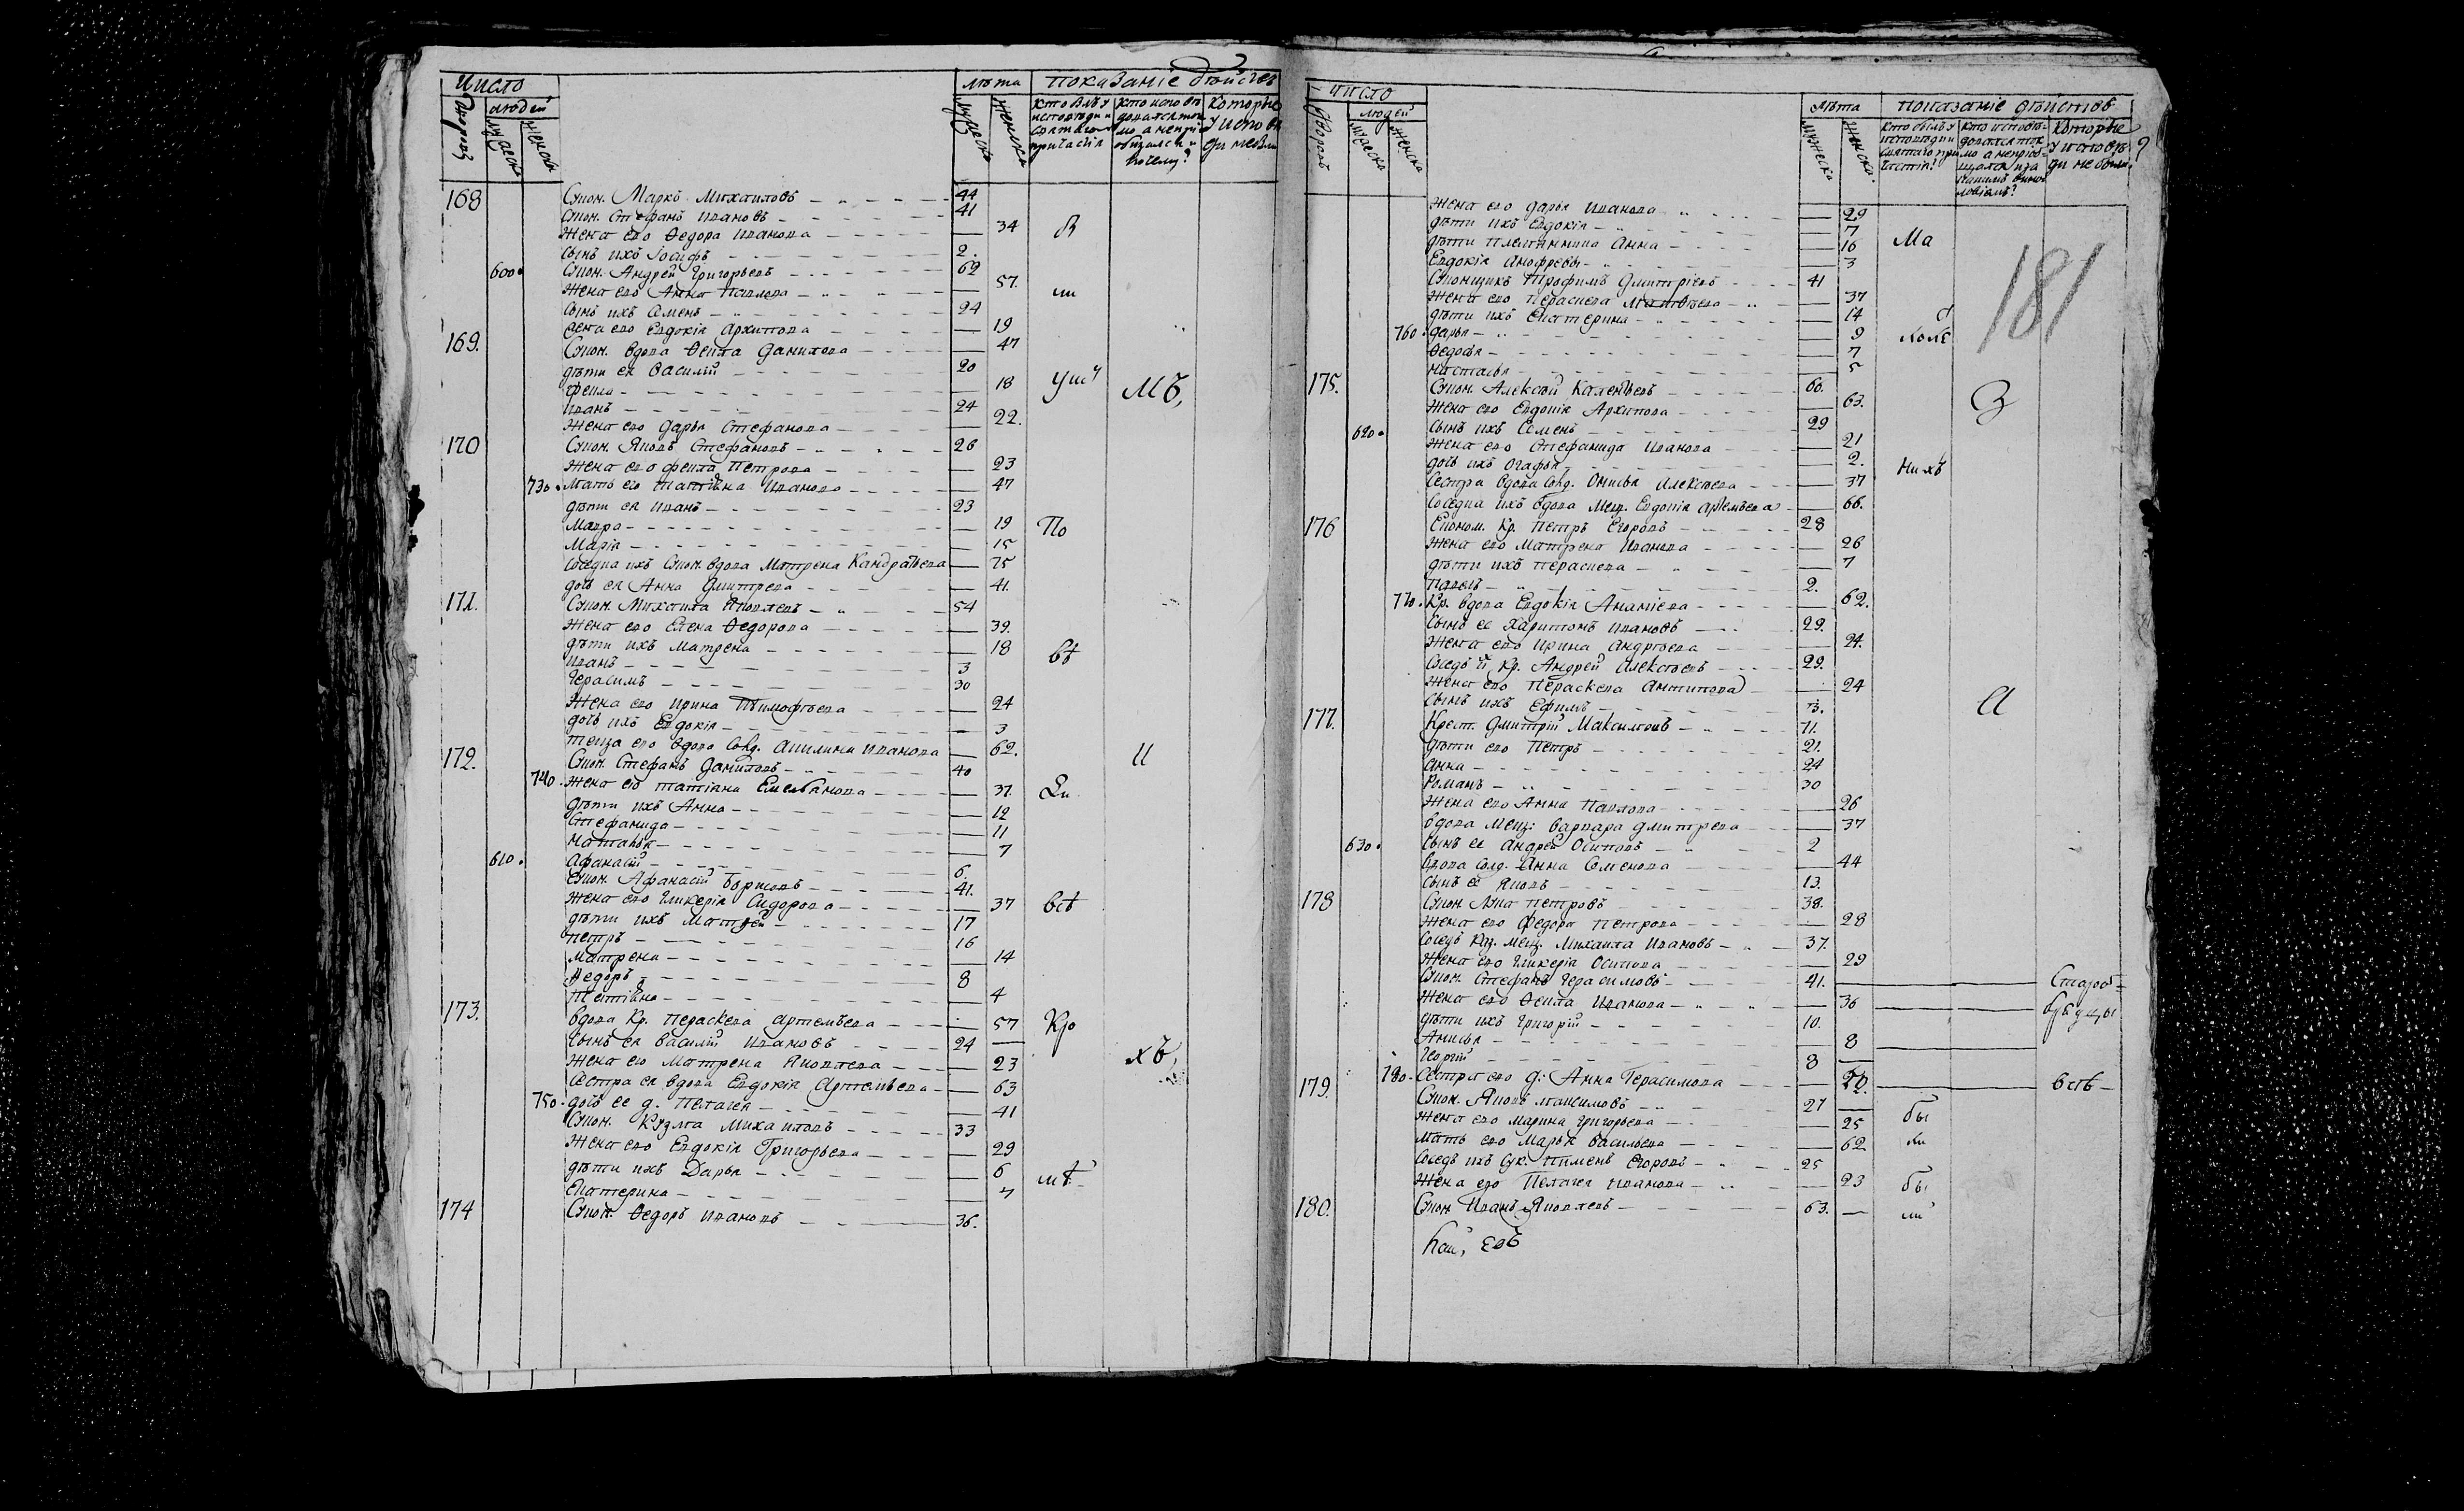 Число
людей
Дворовъ
мужеска
женска
лѣта
мужеска
женска
показаніе дѣйствъ
Кто былъ у исповѣди и святаго причастія
Кто исповѣдовался токмо а непріобщался и почему?
Которые у исповѣди небыли
168 Экон. Маркъ Михаиловъ 44
Экон. Стефанъ Ивановъ 41
Жена его Ѳедора Иванова 34
Сынъ ихъ Іосифъ 2.
600. Экон. Андрей Григорьевъ 62
Жена его Анна Павлова 57.
Сынъ ихъ Семенъ 24
Жена его Евдокія Архипова 19
169. Экон. вдова Ѳекла Данилова 47
дѣти ея Василій 20
Фекла 18
Иванъ 24
Жена его Дарья Стефанова 22.
170 Экон. Яковъ Стефановъ 26
Жена его Фекла Петрова 23
730. Мать его Татіяна Иванова 47
дѣти ея Иванъ 23
Мавра 19
Марія 15
Соседка ихъ Экон. вдова Матрена Кандратьева 75
дочь ея Анна Дмитрева 41.
171. Экон. Михаила Яковлевъ 54
Жена его Елена Ѳедорова 39.
дѣти ихъ Матрена 18
Иванъ 3
Герасимъ 30
Жена его Ирина Тимофѣева 24
дочь ихъ Евдокія 3
теща его вдова солд. Акилина Иванова 62.
172. Экон. Стефанъ Даниловъ 40
740. Жена его Татіяна Емельянова 37.
дѣти ихъ Анна 12
Стефанида 11
Наталья 7
610. Афанасій 6.
Экон. Афанасій Борисовъ 41.
Жена его Гликерія Сидорова 37
дѣти ихъ Матвей 17
Петръ 16
Матрена 14
Ѳедоръ 8
Татіяна 4
173. Вдова Кр. Пераскева Артемьева 57
Сынъ ея Василій Ивановъ 24
Жена его Матрена Яковлева 23
Сестра ея вдова Евдокія Артемьева 63
750. дочь ее д. Пелагея 41
Экон. Кузма Михаиловъ 33
Жена его Евдокія Григорьева 29
дѣти ихъ Дарья 6
Екатерина 7
174 Экон. Ѳедоръ Ивановъ 36.
мъ,
И
хъ,
По
вѣ
всѣ
Число
людей
Дворовъ
мужеска
женска
лѣта
мужеска
женска
показаніе дѣйствъ
Кто былъ у исповѣди и святаго причастія?
Кто исповѣдовался токмо а непріобщался и за какимъ винословіемъ?
Которые у исповѣди не были?
181
Жена его Дарья Иванова 29
дѣти ихъ Евдокія 7
дѣти племянника Анна 16
Евдокія Анофревы 3
Экономикъ Трофимъ Дмитріевъ 41
Жена его Пераскева Матвѣева 37
дѣти ихъ Екатерина 14
760. Дарья 9
Ѳедосья 7
Настасья 5
175. Экон. Алексѣй Калентьевъ 60.
Жена его Евдокія Архипова 63.
620. Сынъ ихъ Семенъ 29
Жена его Стефанида Иванова 21
дочь ихъ Огафья 2.
Сестра вдова солд. Онисья Алексѣева 37
Соседка ихъ вдова Мещ. Евдокія Артемьева 66.
176 Економ. Кр. Петръ Егоровъ 28
Жена его Матрена Иванова 26
дѣти ихъ Пераскева 7
Павелъ 2.
770. Кр. вдова Евдокія Ананіева 62.
Сынъ ее Харитонъ Ивановъ 29.
Жена его Ирина Андрѣева 24.
Соседъ Кр. Андрей Алексѣевъ 29.
Жена его Пераскева Антипова 24
Сынъ ихъ Ефимъ 3.
177. Крест. Дмитрій Максимовъ 71.
дѣти его Петръ 21.
Анна 24
Романъ 30
Жена его Анна Павлова 26
вдова Мещ: Варвара Дмитрева 37
630. Сынъ ее Андрей Осиповъ 2
вдова солд. Анна Семенова 44
Сынъ ее Яковъ 13.
178 Экон. Лука Петровъ 38.
Жена его Федора Петрова 28
Соседъ Каз. мещ. Михаила Ивановъ 37.
Жена его Гликерія Осипова 29
Экон. Стефанъ Герасимовъ 41. Староо=
Жена его Ѳекла Иванова 36
дѣти ихъ Григорій 10. брядцы
Анисья 8
Георгій 8
780. Сестра его д: Анна Герасимова
179. Экон. Яковъ Максимовъ 27 всѣ
Жена его Марина Григорьева 25
Мать его Марья Васильева 62
Соседъ ихъ Пименъ Егоровъ 25
Жена его Пелагея Иванова 23
180. Экон. Иванъ Яковлевъ 63.
Ма
З
нихъ
а
бы
ли
бы
ли